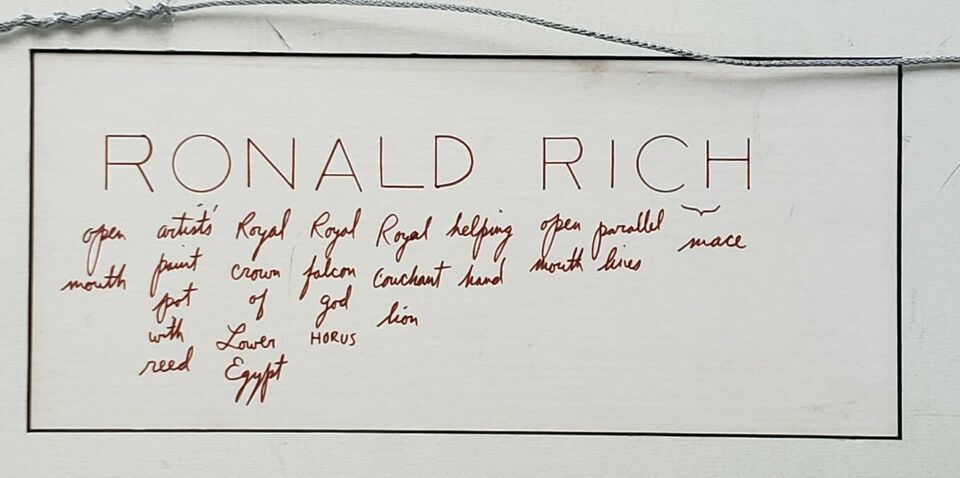 RONALD RICH
open artist's Royal Royal Royal helping open parallel mace
mouth paint crown falcon couchant hand mouth lines
pot of god lion
with Lower HORUS
reed Egypt